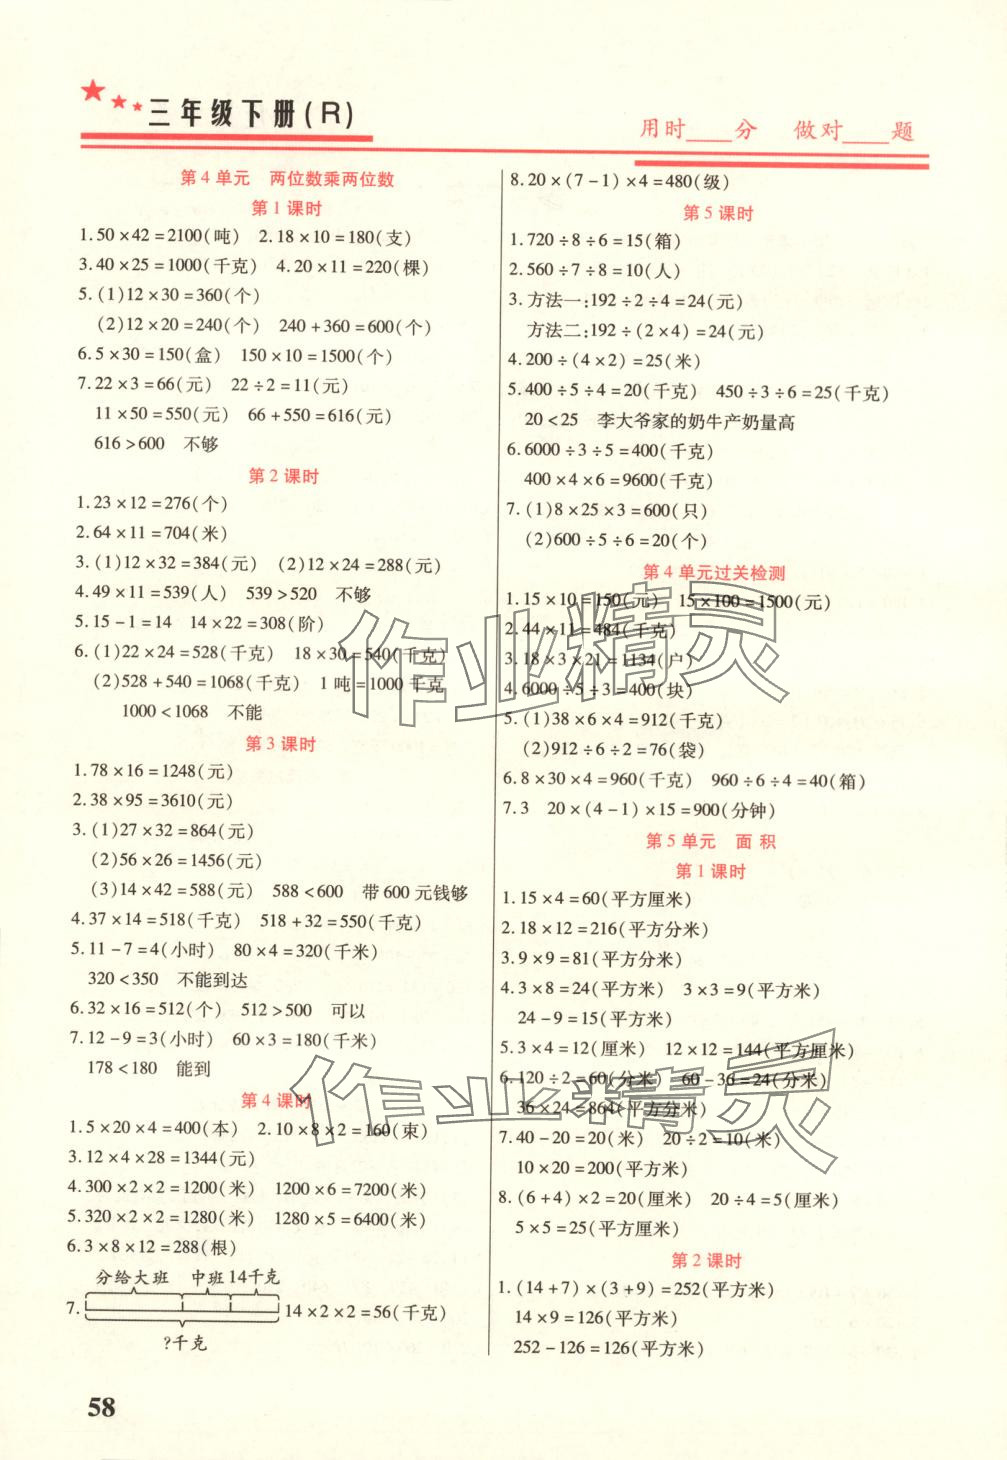 三年级下册(R)
用时____分 做对____题
第4单元 两位数乘两位数
第1课时
1.50×42=2100(吨) 2.18×10=180(支)
3.40×25=1000(千克) 4.20×11=220(棵)
5.(1)12×30=360(个)
(2)12×20=240(个) 240+360=600(个)
6.5×30=150(盒) 150×10=1500(个)
7.22×3=66(元) 22÷2=11(元)
11×50=550(元) 66+550=616(元)
616>600 不够
第2课时
1.23×12=276(个)
2.64×11=704(米)
3.(1)12×32=384(元) (2)12×24=288(元)
4.49×11=539(人) 539>520 不够
5.15-1=14 14×22=308(阶)
6.(1)22×24=528(千克) 18×30=540(千克)
(2)528+540=1068(千克) 1吨=1000千克
1000<1068 不能
第3课时
1.78×16=1248(元)
2.38×95=3610(元)
3.(1)27×32=864(元)
(2)56×26=1456(元)
(3)14×42=588(元) 588<600 带600元钱够
4.37×14=518(千克) 518+32=550(千克)
5.11-7=4(小时) 80×4=320(千米)
320<350 不能到达
6.32×16=512(个) 512>500 可以
7.12-9=3(小时) 60×3=180(千米)
178<180 能到
第4课时
1.5×20×4=400(本) 2.10×8×2=160(束)
3.12×4×28=1344(元)
4.300×2×2=1200(米) 1200×6=7200(米)
5.320×2×2=1280(米) 1280×5=6400(米)
6.3×8×12=288(根)
分给大班 中班 14千克
7. 14×2×2=56(千克)
?千克
8.20×(7-1)×4=480(级)
第5课时
1.720÷8÷6=15(箱)
2.560÷7÷8=10(人)
3.方法一:192÷2÷4=24(元)
方法二:192÷(2×4)=24(元)
4.200÷(4×2)=25(米)
5.400÷5÷4=20(千克) 450÷3÷6=25(千克)
20<25 李大爷家的奶牛产奶量高
6.6000÷3÷5=400(千克)
400×4×6=9600(千克)
7.(1)8×25×3=600(只)
(2)600÷5÷6=20(个)
第4单元过关检测
1.15×10=150(元) 15×100=1500(元)
2.44×11=484(千克)
3.18×3×21=1134(户)
4.6000÷5÷3=400(块)
5.(1)38×6×4=912(千克)
(2)912÷6÷2=76(袋)
6.8×30×4=960(千克) 960÷6÷4=40(箱)
7.3 20×(4-1)×15=900(分钟)
第5单元 面积
第1课时
1.15×4=60(平方厘米)
2.18×12=216(平方分米)
3.9×9=81(平方分米)
4.3×8=24(平方米) 3×3=9(平方米)
24-9=15(平方米)
5.3×4=12(厘米) 12×12=144(平方厘米)
6.120÷2=60(分米) 60-36=24(分米)
36×24=864(平方分米)
7.40-20=20(米) 20÷2=10(米)
10×20=200(平方米)
8.(6+4)×2=20(厘米) 20÷4=5(厘米)
5×5=25(平方厘米)
第2课时
1.(14+7)×(3+9)=252(平方米)
14×9=126(平方米)
252-126=126(平方米)
58
作业精灵
作业精灵